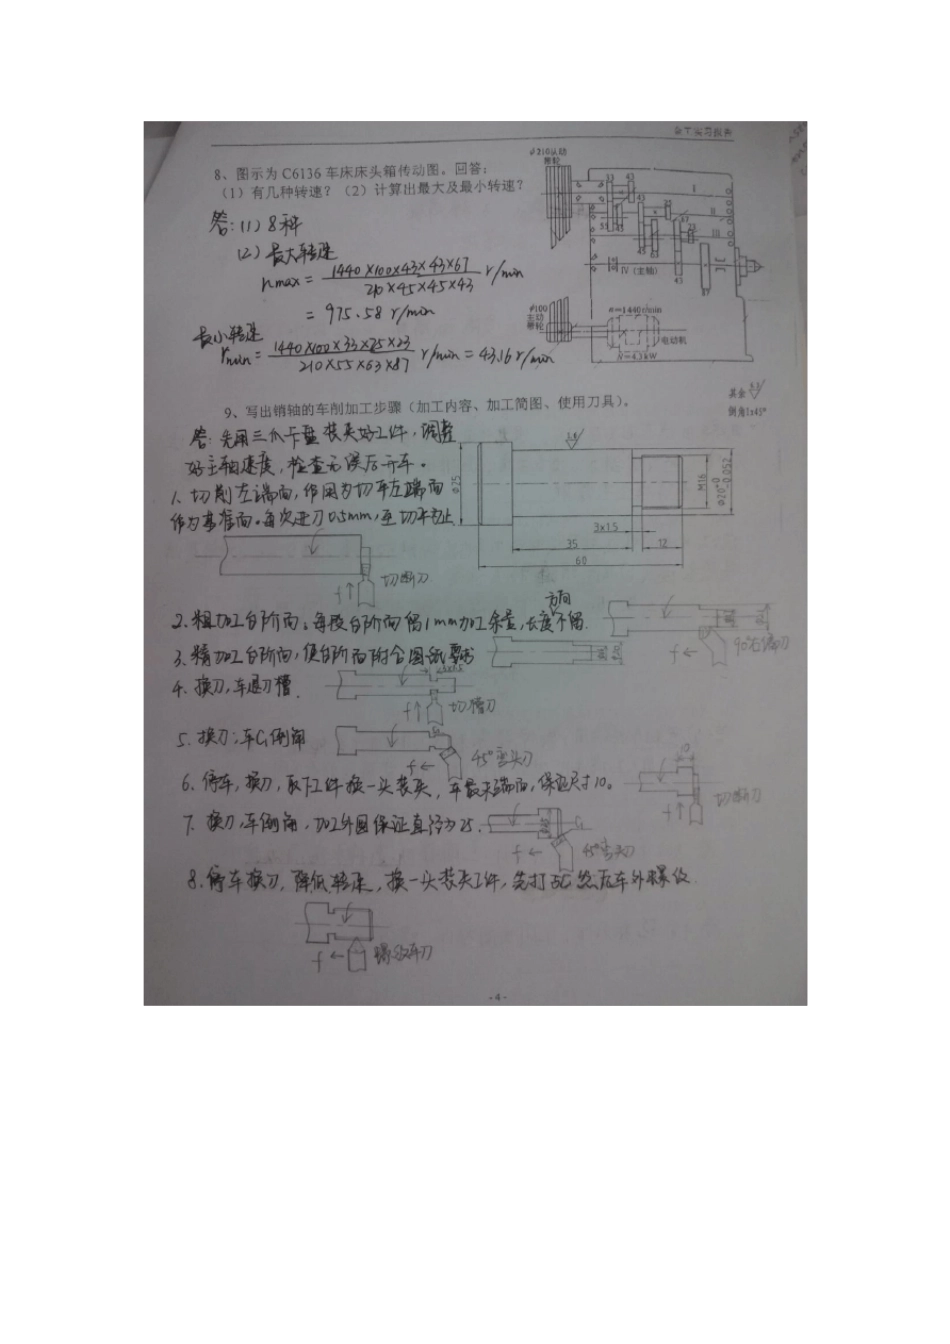 金工实习报告
8、图示为 C6136 车床床头箱传动图。回答：
（1）有几种转速？（2）计算出最大及最小转速？
答：(1) 8种
(2) 最大转速
nmax = 1440×100×43×43×67 / 210×45×45×43 r/min
= 975.58 r/min
最小转速
nmin = 1440×100×33×25×23 / 210×55×63×87 r/min = 43.16 r/min
φ210从动
带轮
33 43
I
II
III
IV（主轴）
φ100
主动
带轮
n=1440r/min
电动机
N=4.5kW
9、写出销轴的车削加工步骤（加工内容、加工简图、使用刀具）。
其余
倒角1x45°
答：先用三爪卡盘装夹好工件，调整
好主轴速度，检查无误后开车。
1、切削左端面，作用为切平左端面
作为基准面。每次进刀0.5mm，至切平为止
φ25
M16
3x1.5
35
12
60
f 切断刀
2、粗加工台阶面；每段台阶面留1mm加工余量，长度方向不留.
f 90°右偏刀
3、精加工台阶面，使台阶面附合图纸要求
4、换刀，车退刀槽.
f 切槽刀
5、换刀；车C1倒角
f 45°弯头刀
6、停车，换刀，取下工件换一头装夹，车最末端面，保证尺寸10。
10
f 切断刀
7、换刀，车倒角，加工外圆保证直径为25.
C1
f 45°弯头刀
8、停车换刀，降低转速，换一头装夹工件，然后车外螺纹.
f 螺纹车刀
- 4 -